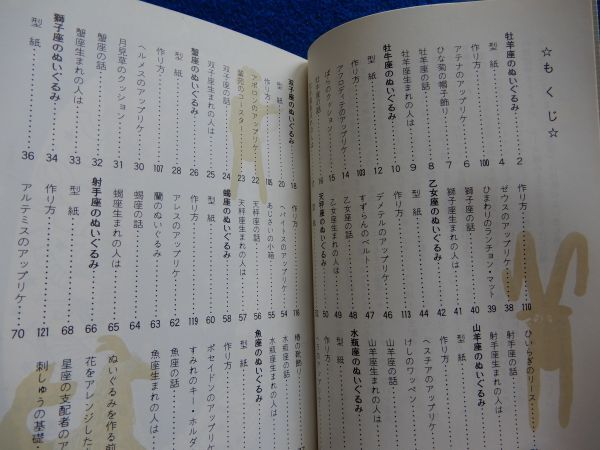 ☆もくじ☆
牡羊座のぬいぐるみ……2
型紙……4
作り方……100
アテナのアップリケ……6
ひな菊の帽子飾り……7
牡羊座の話……8
牡羊座生まれの人は……9
牡牛座のぬいぐるみ……10
型紙……12
作り方……103
アフロディテのアップリケ……14
ばらのクッション……15
牡牛座の話……16
双子座のぬいぐるみ……18
型紙……20
作り方……105
アポロンのアップリケ……22
のコースター……23
双子座の話……24
双子座生まれの人は……25
蟹座のぬいぐるみ……26
型紙……28
作り方……107
ヘルメスのアップリケ……30
月見草のクッション……31
蟹座の話……32
蟹座生まれの人は……33
獅子座のぬいぐるみ……34
型紙……36
作り方……110
ゼウスのアップリケ……38
ひまわりのランチョン・マット……39
獅子座の話……40
獅子座生まれの人は……41
乙女座のぬいぐるみ……42
型紙……44
作り方……113
デメテルのアップリケ……46
すずらんのベルト……47
乙女座の話……48
乙女座生まれの人は……49
天秤座のぬいぐるみ……50
作り方……116
ヘパイトスのアップリケ……54
あじさいの小箱……55
天秤座の話……56
天秤座生まれの人は……57
蠍座のぬいぐるみ……58
型紙……60
作り方……119
アレスのアップリケ……62
蘭のぬいぐるみ……63
蠍座の話……64
蠍座生まれの人は……65
射手座のぬいぐるみ……66
型紙……68
作り方……121
アルテミスのアップリケ……70
ひいらぎのリース
射手座の話
射手座生まれの人は
山羊座のぬいぐるみ
型紙
作り方
ヘスチアのアップリケ
けしのワッペン
山羊座の話
山羊座生まれの人は
水瓶座のぬいぐるみ
椿の靴飾り
水瓶座の話
水瓶座生まれの人は
魚座のぬいぐるみ
型紙
作り方
ポセイドンのアップリケ
すみれのキ・ホルダ
魚座の話
魚座生まれの人は
ぬいぐるみを作る前
花をアレンジした
星座の支配者のア
刺しゅうの基礎